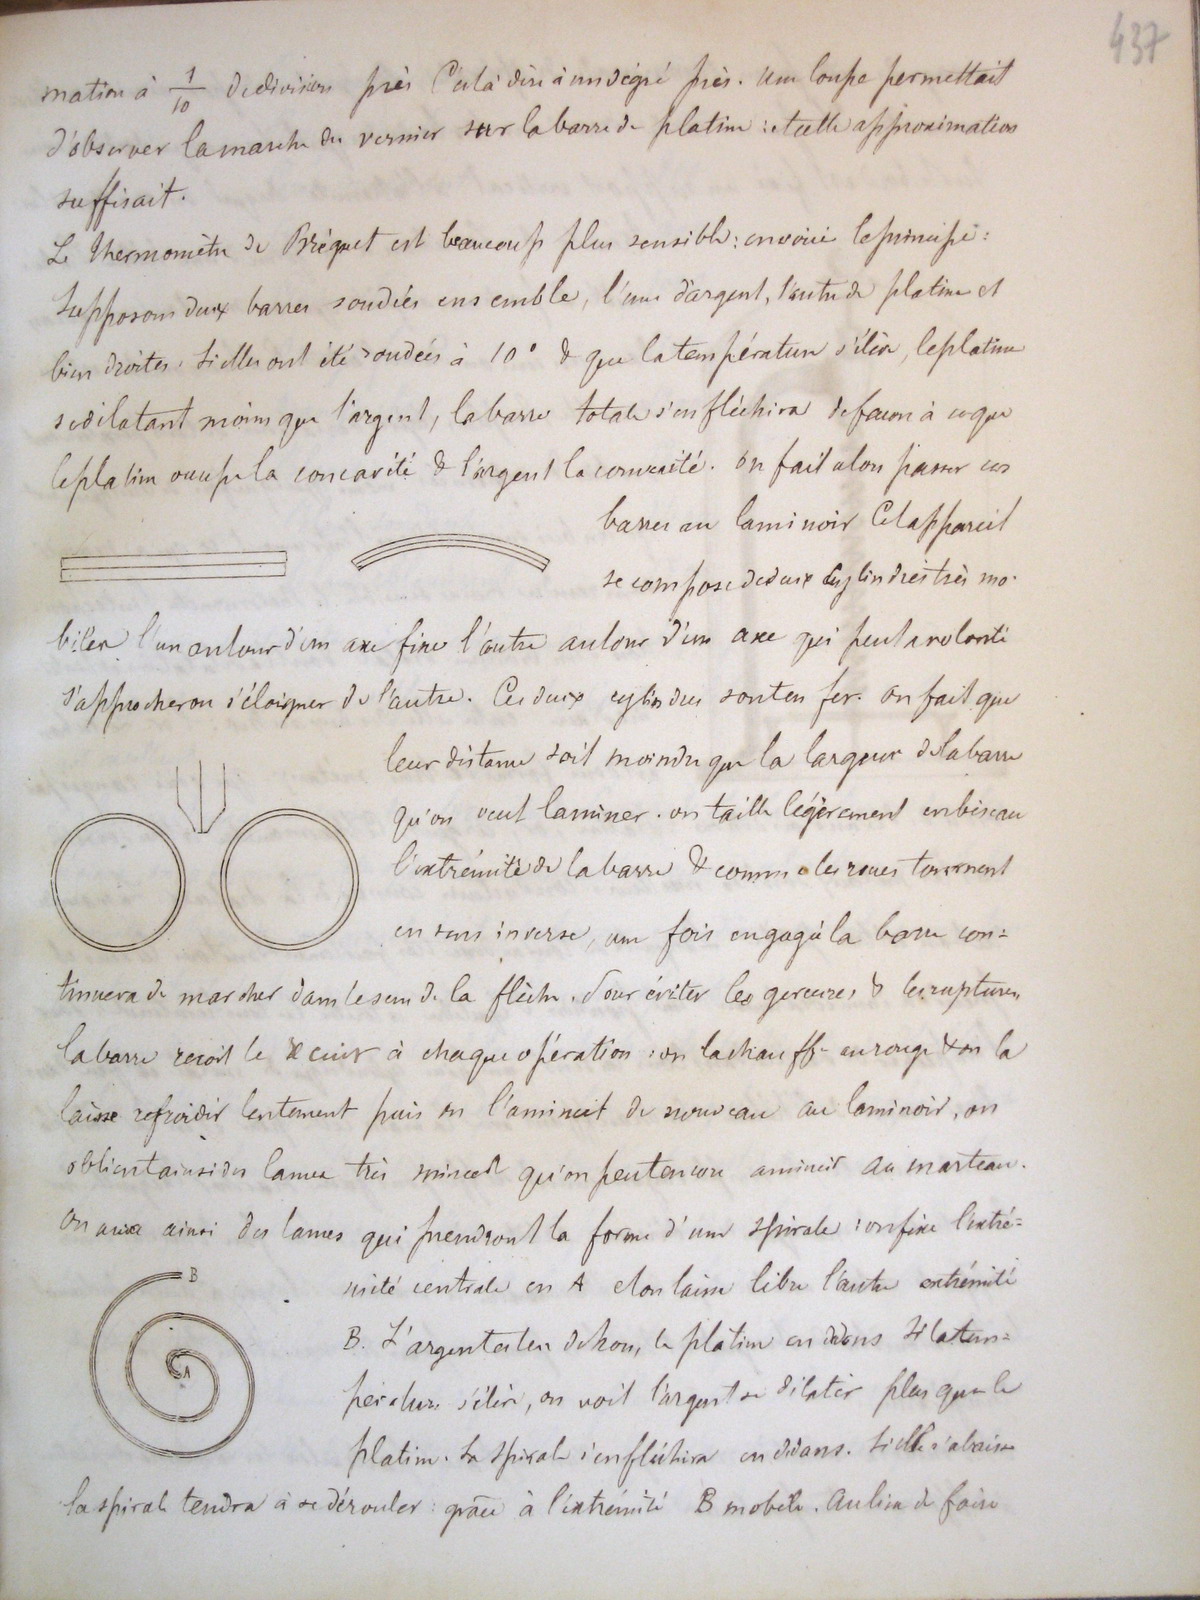 437
mation à 1/10 de division près C'est à dire à un dégré près. Une loupe permettait
d'observer la marche du vernier sur la barre de platine : et cette approximation
suffisait.
Le thermomètre de Bréguet est beaucoup plus sensible : en voici le principe :
Supposons deux barres soudées ensemble, l'une d'argent, l'autre de platine et
bien droites. Si elles ont été soudées à 10° & que la température s'élève, le platine
se dilatant moins que l'argent, la barre totale s'enfléchira de façon à ce que
le platine occupe la concavité & l'argent la convexité. On fait alors passer ces
barres au laminoir Cet appareil
se compose de deux cylindres très mo-
biles l'un autour d'un axe fixe l'autre autour d'un axe qui peut à volonté
s'approcher ou s'éloigner de l'autre. Ces deux cylindres sont en fer. On fait que
leur distance soit moindre que la largeur de la barre
qu'on veut laminer. on taille légèrement en biseau
l'extrémité de la barre & comme les roues tournent
en sens inverse, une fois engagée la barre con=
tinuera de marcher dans le sens de la flèche. Pour éviter les gerçures & les ruptures,
la barre reçoit le recuit à chaque opération : on la chauffe au rouge & on la
laisse refroidir lentement puis on l'amincit de nouveau au laminoir, on
obtient ainsi des lames très minces qu'on peut encore amincir au marteau.
On aura ainsi des lames qui prendront la forme d'une spirale : on fixe l'extré=
mité centrale en A et on laisse libre l'autre extrémité
B. L'argent est en dehors, le platine en dedans Si la tem=
pérature s'élève, on voit l'argent se dilater plus que le
platine. La spirale s'enfléchira en dedans. Si elle s'abaisse
la spirale tendra à se dérouler : grâce à l'extrémité B mobile. Au lieu de faire
B
A